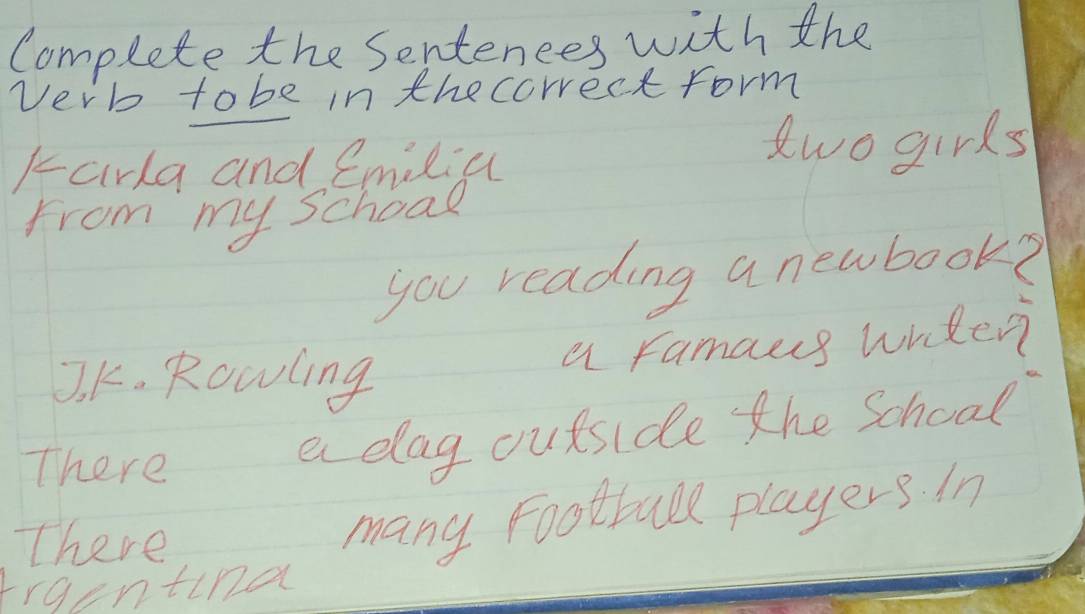 Complete the Sentences with the
Verb to be in the correct Form
Karla and Emilia two girls
From my School
you reading a new book?
J.K. Rowling a Famous writer?
There a dog outside the School
There many Football players. In
Argentina